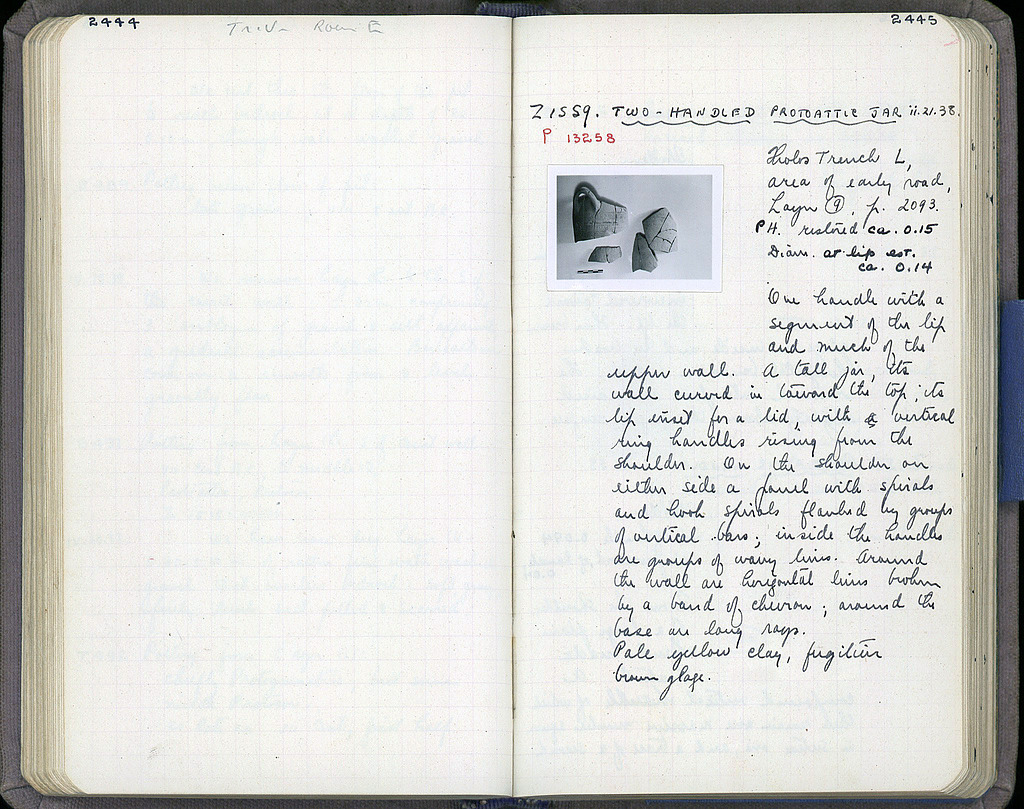 2444
2445
Z1559. TWO-HANDLED PROTOATTIC JAR 11.21.38.
P 13258
Tholos Trench L,
area of early road,
Layer 9, p. 2093.
P H. restored ca. 0.15
Diam. at lip est.
ca. 0.14
One handle with a
segment of the lip
and much of the
upper wall. A tall jar, its
wall curved in toward the top; its
lip inset for a lid, with vertical
ring handles rising from the
shoulder. On the shoulder on
either side a panel with spirals
and hook spirals flanked by groups
of vertical bars; inside the handles
are groups of wavy lines. Around
the wall are horizontal lines broken
by a band of chevron; around the
base are long rays.
Pale yellow clay, fugitive
brown glaze.